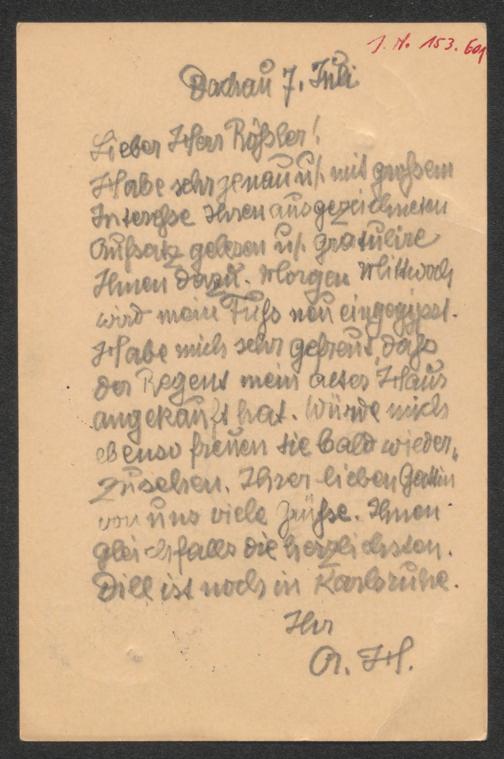 J. N. 153.601
Dachau 7. Juli
Lieber Herr Rößler!
Habe sehr genau u. mit großem
Interesse Ihren ausgezeichneten
Aufsatz gelesen u. gratulire
Ihnen dazu. Morgen Mittwoch
wird mein Fuß neu eingegipst.
Habe mich sehr gefreut, daß
der Regent mein altes Haus
angekauft hat. Würde mich
ebenso freuen Sie bald wieder-
zusehen. Ihrer lieben Gattin
von uns viele Grüße. Ihnen
gleichfalls die herzlichsten.
Dill ist noch in Karlsruhe.
Ihr
A. H.